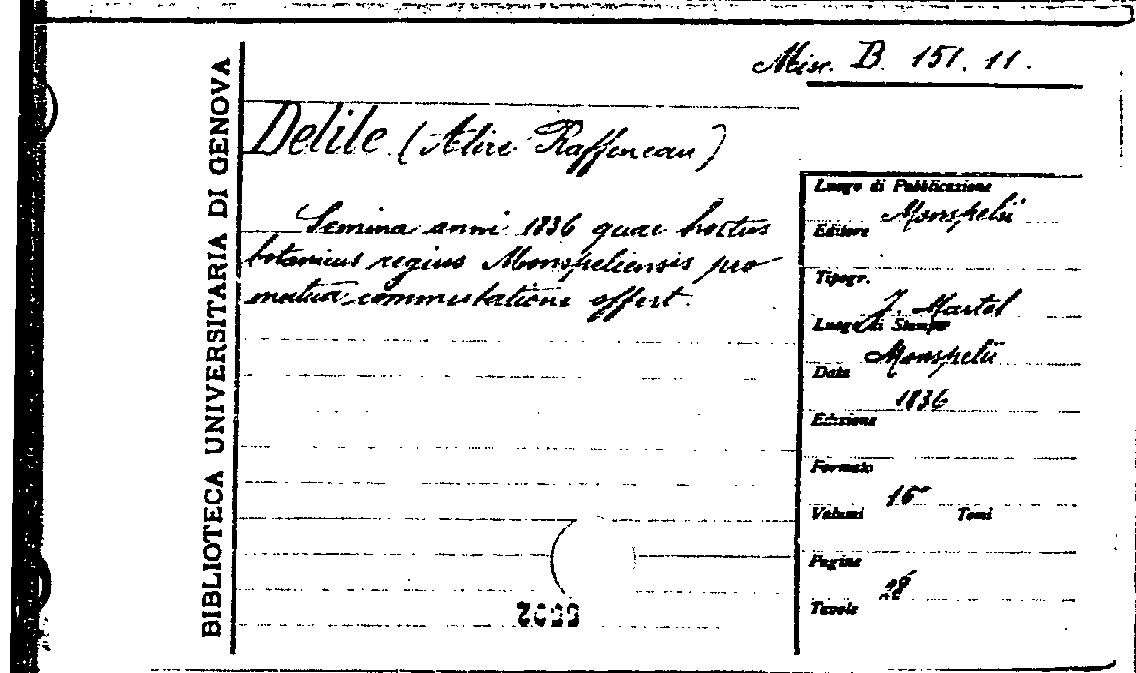 Misc. B. 151. 11.
BIBLIOTECA UNIVERSITARIA DI GENOVA
Delile (Alire Raffeneau)
Semina anni 1836 quae hortus
botanicus regius Monspeliensis pro
mutua commutatione offert.
Luogo di Pubblicazione
Monspelii
Editore
Tipogr.
J. Martel
Luogo di Stampa
Monspelii
Data
1836
Edizione
Formato
Volumi Tomi
Pagine
28
Tavole